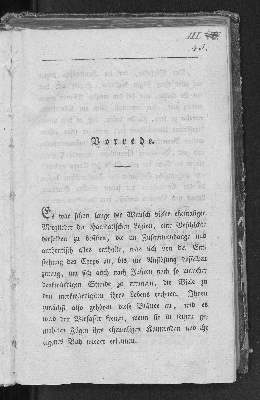 Vorrede.
Es war schon lange der Wunsch vieler ehemaliger
Mitglieder der Hanseatischen Legion, eine Geschichte
derselben zu besitzen, die im Zusammenhange und
authentisch alles enthalte, was sich von der Ent-
stehung des Corps an, bis zur Auflösung desselben
zutrug, um sich auch nach Jahren noch so mancher
denkwürdigen Stunde zu erinnern, die Viele zu
den merkwürdigsten ihres Lebens rechnen. Ihnen
zunächst also gehören diese Blätter an, und es
wird den Verfasser freuen, wenn sie in seinen ge-
Zügen ihre ehemaligen Kameraden und ihr
eigenes Bild wieder erkennen.